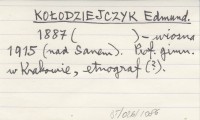 KOŁODZIEJCZYK Edmund.
1887 ( ) – wiosna
1915 (nad Sanem). Prof. gimn.
w Krakowie, etnograf (?).